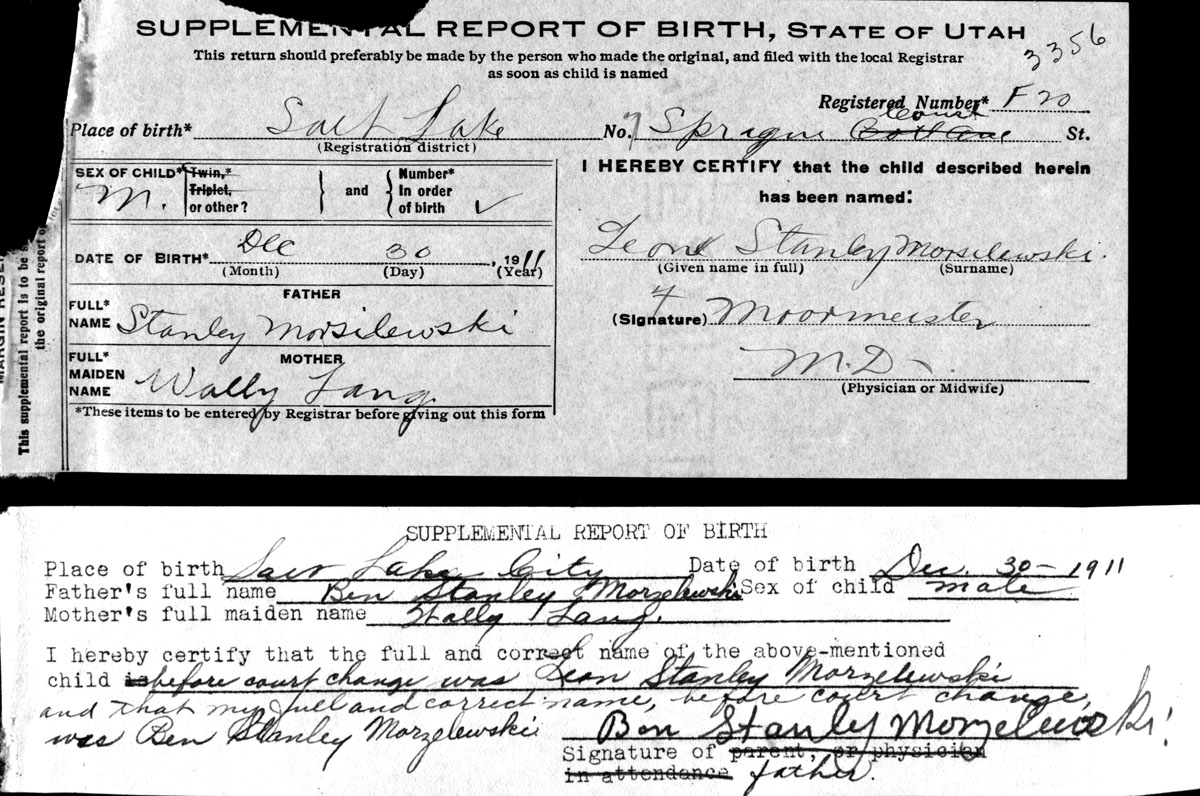 SUPPLEMENTAL REPORT OF BIRTH, STATE OF UTAH
This return should preferably be made by the person who made the original, and filed with the local Registrar
as soon as child is named
3356
Registered Number* F20
Place of birth* Salt Lake No. 7 Sprague Court St.
(Registration district)
SEX OF CHILD* M. Twin,* Triplet, or other? and Number* In order of birth ✓
DATE OF BIRTH* Dec 30, 1911
(Month) (Day) (Year)
FATHER
FULL* NAME Stanley Morsilewski
MOTHER
FULL* MAIDEN NAME Wally Lang
*These items to be entered by Registrar before giving out this form
I HEREBY CERTIFY that the child described herein
has been named:
Leon Stanley Morsilewski.
(Given name in full) (Surname)
(Signature) F Moormeister
M.D.
(Physician or Midwife)
This supplemental report is to be
the original report of
SUPPLEMENTAL REPORT OF BIRTH
Place of birth Salt Lake City Date of birth Dec. 30-1911
Father's full name Ben Stanley Morzelewski Sex of child male
Mother's full maiden name Wally Lang.
I hereby certify that the full and correct name of the above-mentioned
child is before court change was Leon Stanley Morzelewski
and that my full and correct name, before court change,
was Ben Stanley Morzelewski
Ben Stanley Morzelewski
Signature of parent, or physician
in attendance father.